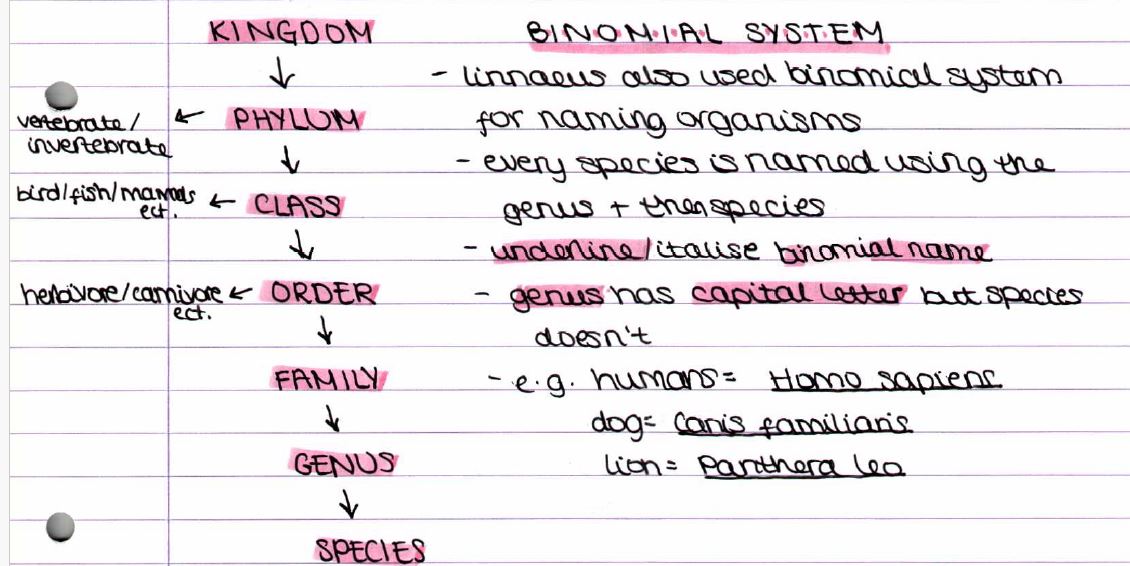 KINGDOM
↓
vertebrate/
invertebrate
← PHYLUM
↓
bird/fish/mammals
ect.
← CLASS
↓
herbivore/carnivore
ect.
← ORDER
↓
FAMILY
↓
GENUS
↓
SPECIES
BINOMIAL SYSTEM
- linnaeus also used binomial system
for naming organisms
- every species is named using the
genus + then species
- underline/italise binomial name
- genus has capital letter but species
doesn't
- e.g. humans = Homo sapiens
dog = Canis familiaris
lion = Panthera leo